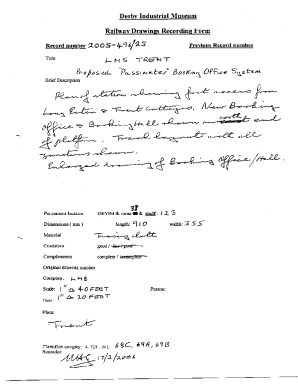 Derby Industrial Museum
Railway Drawings Recording Form
Record number 2005-496/23 Previous Record number
Title LMS TRENT
Proposed 'Passimeter' Booking Office System
Brief Description
Plan of station showing foot access from
Long Eaton & Trent Cottages. New Booking
Office & Booking Hall shown north end
of platform. Track layout with all
junctions shown.
Enlarged drawing of Booking Office/Hall.
38
Permanent location DEVIM & room & shelf: 123
Dimensions (mm) length: 910 width: 355
Material Tracing cloth
Condition good / fair / poor
Completeness complete / incomplete
Original drawing number
Company: LMS
Scale: 1" @ 40 FEET Person:
1" @ 20 FEET
Date:
Place:
Trent
Classified category: 4, 723, 301, 68C, 69A, 69B
Recorder: 17/2/2006